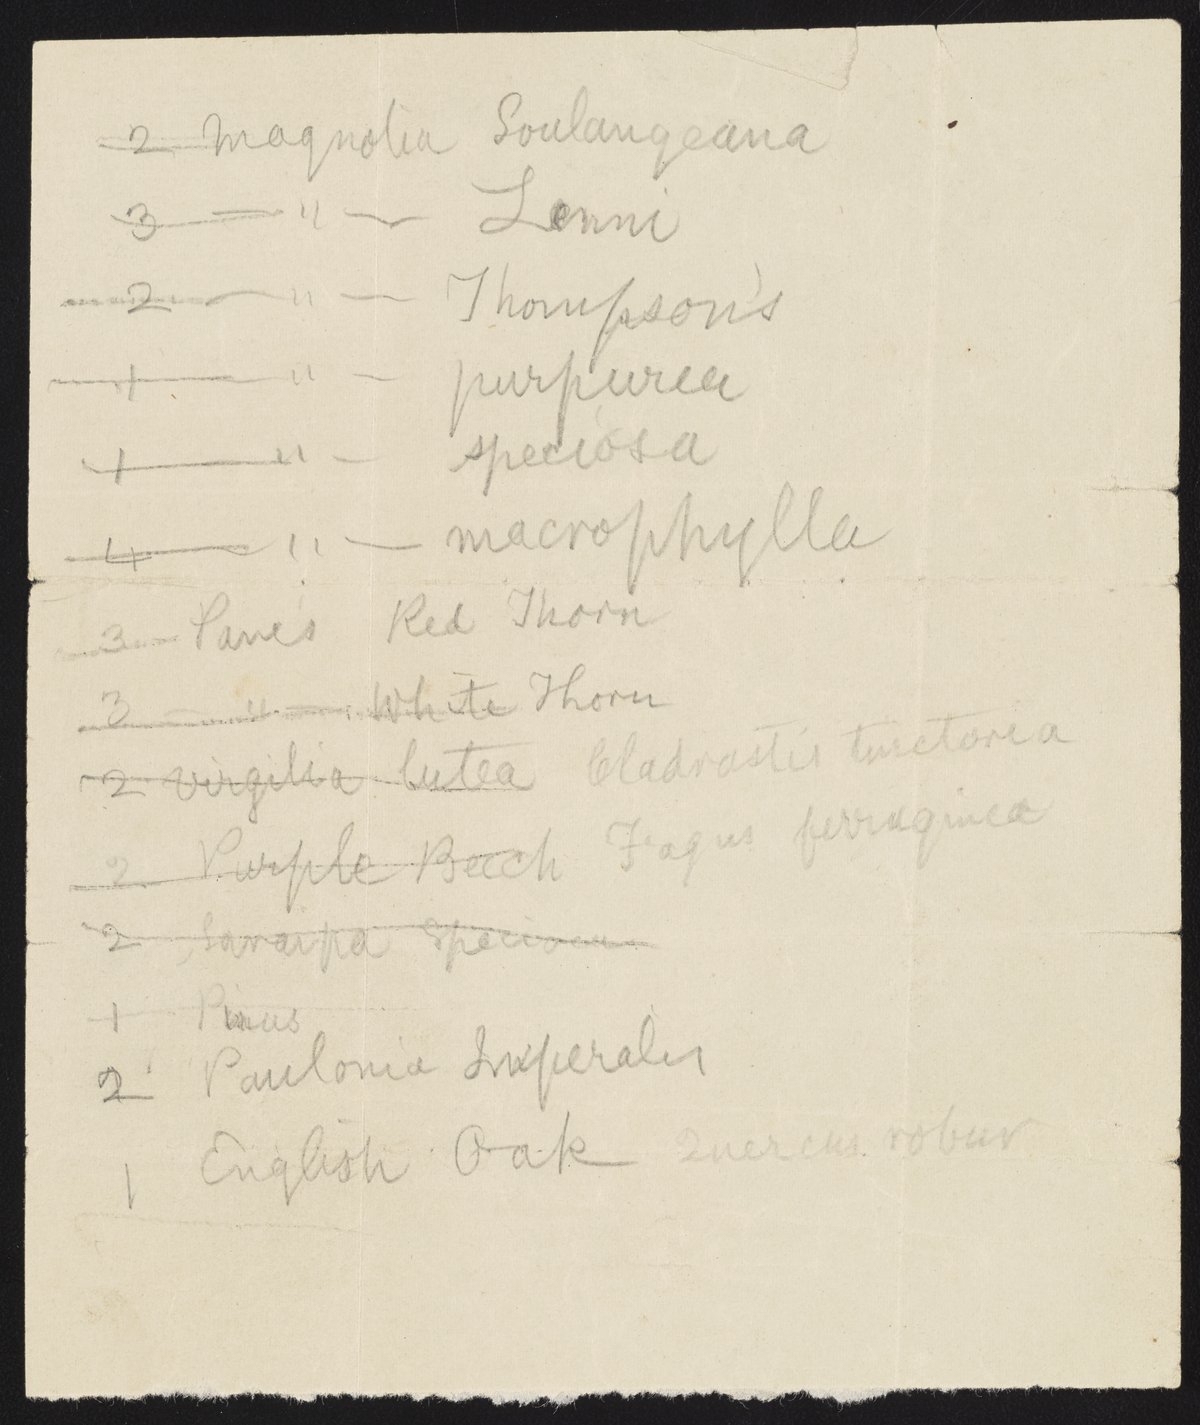 2 Magnolia Soulangeana
3 — " — Lenni
2 — " — Thompson's
1 — " — purpurea
1 — " — speciosa
4 — " — macrophylla
3 Paves Red Thorn
3 — " — White Thorn
2 Virgilia lutea Cladrastis tinctoria
2 Purple Beech Fagus ferruginea
2
1 Pinus
2 Paulonia Imperalis
1 English Oak Quercus robur